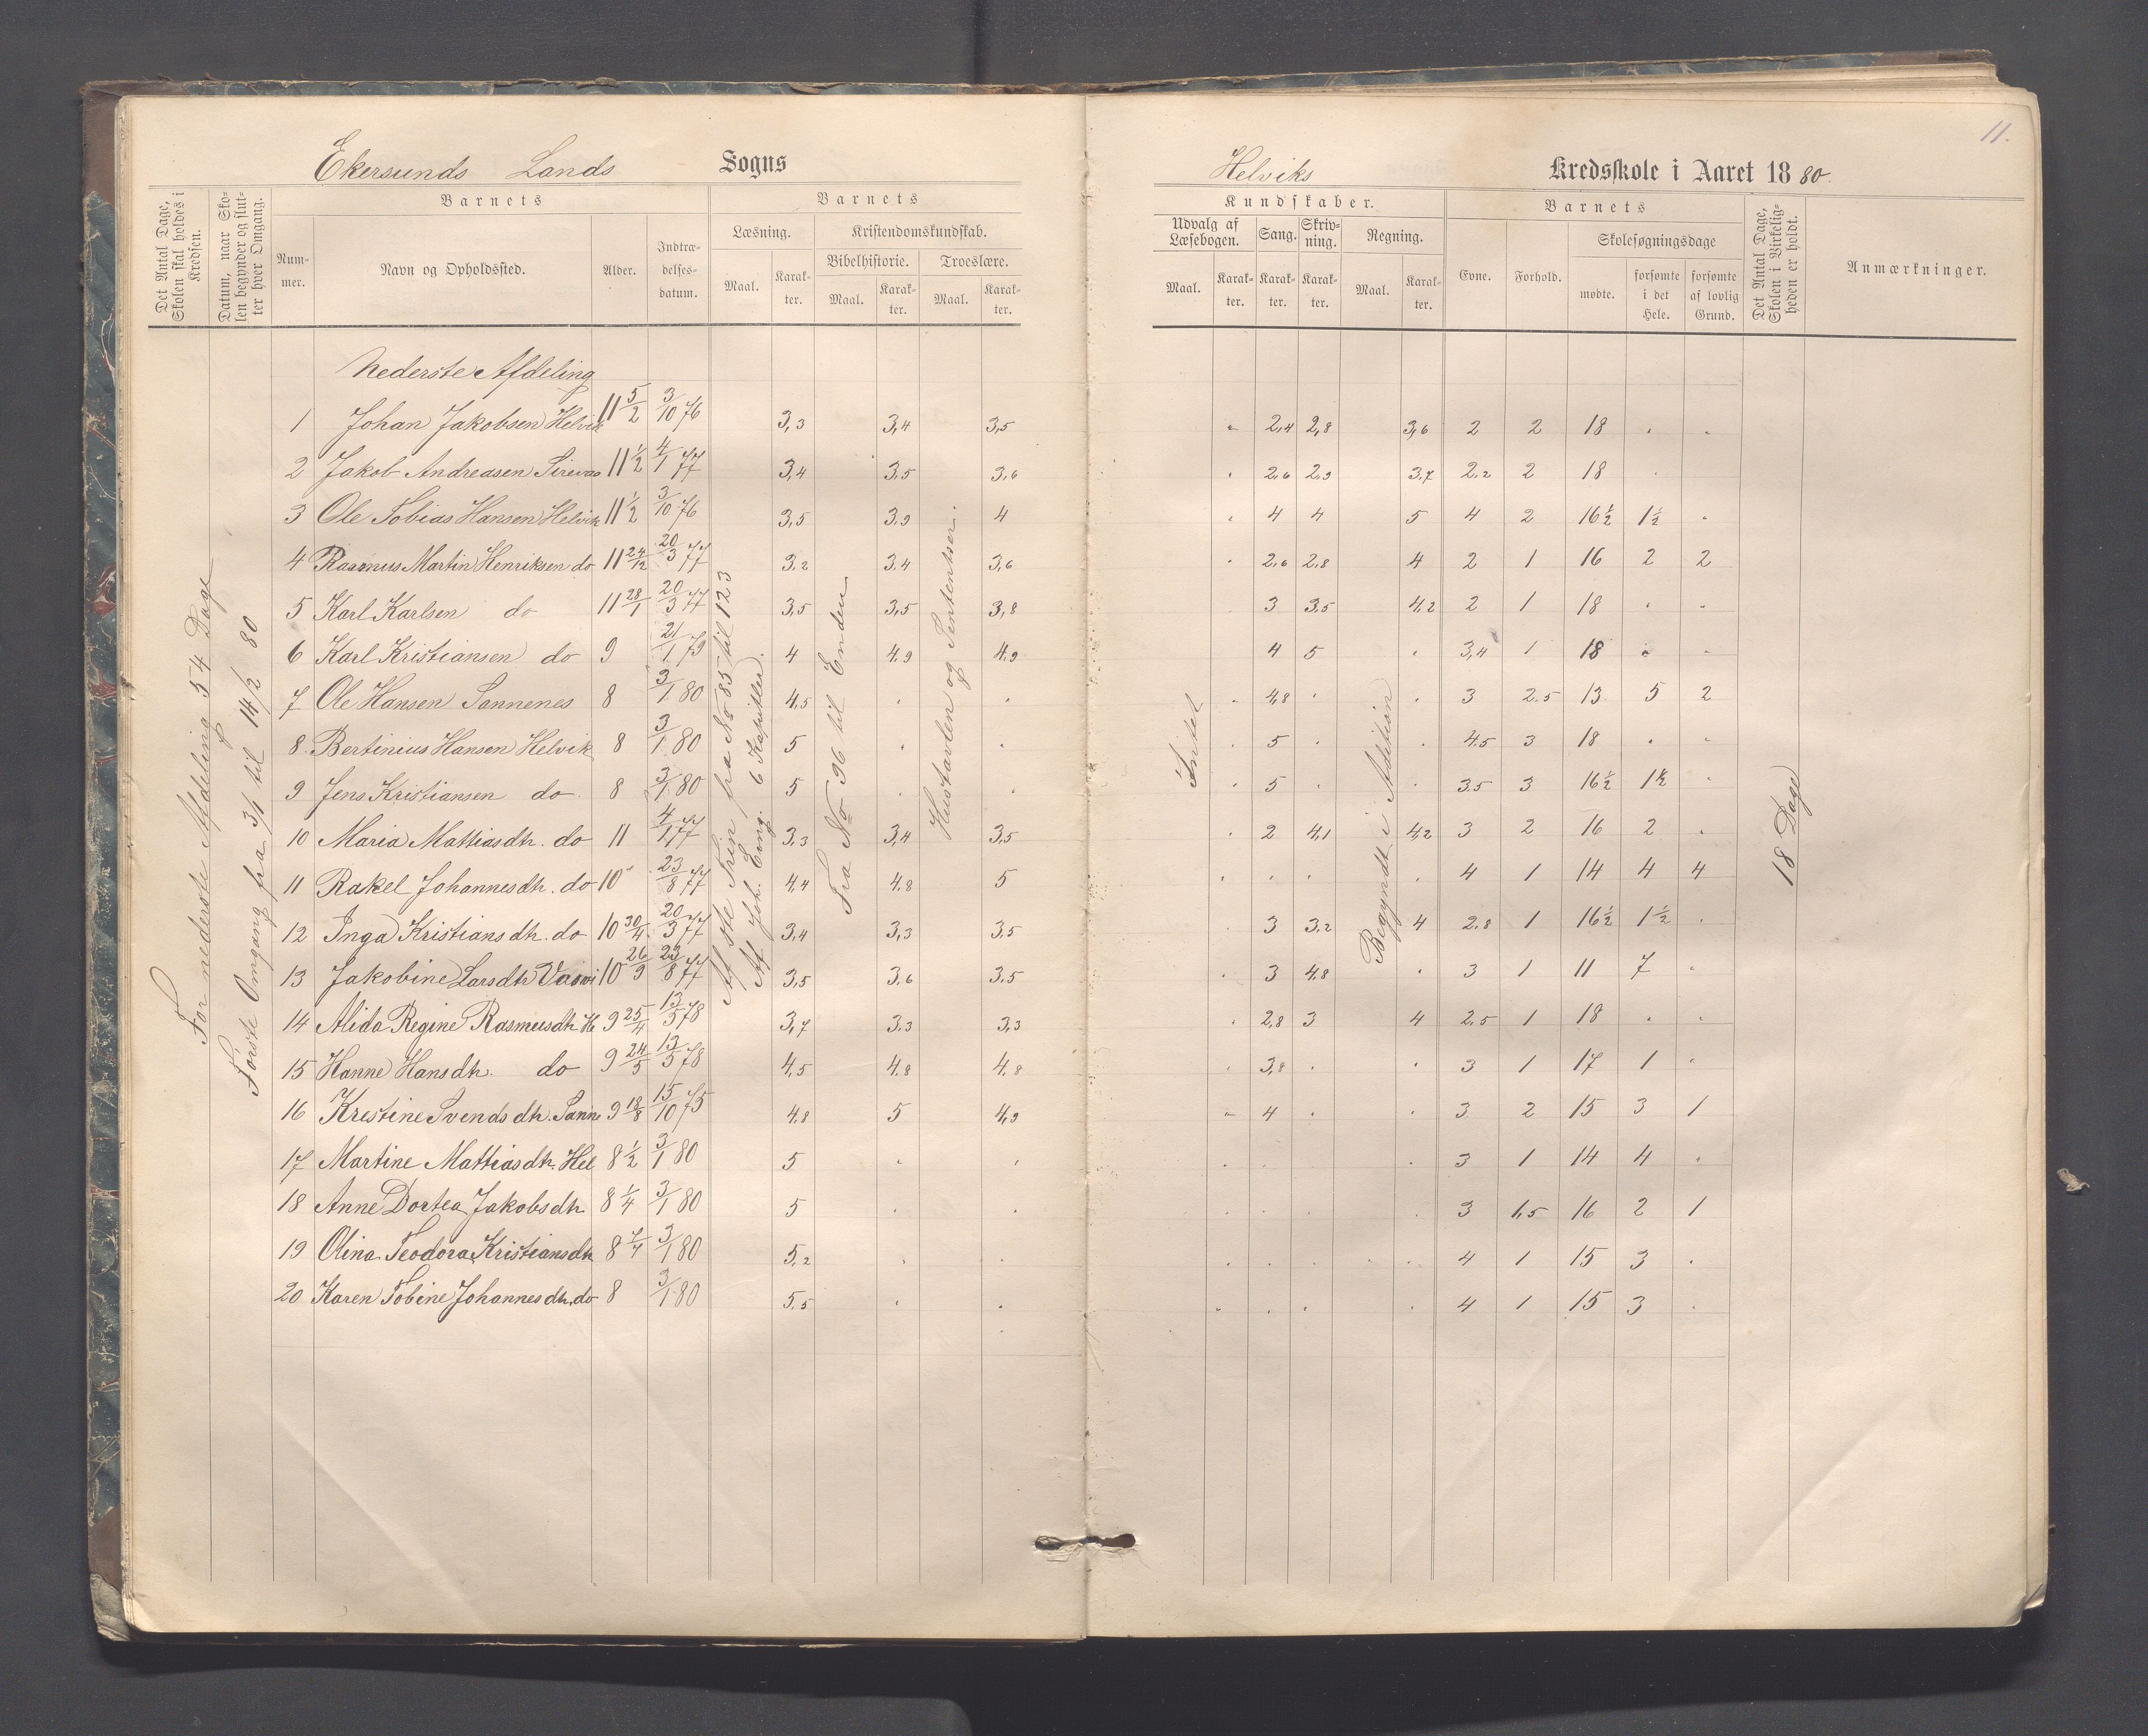 11.
Ekersunds Lands Sogns Helviks Kredsskole i Aaret 1880.
Det Antal Dage, Skolen skal holdes i Kredsen.
Datum, naar Skolen begynder og slutter hver Omgang.
Barnets
Barnets
Kundskaber.
Barnets
Det Antal Dage, Skolen i Virkeligheden er holdt.
Anmærkninger.
Nummer.
Navn og Opholdssted.
Alder.
Indtrædelsesdatum.
Læsning.
Kristendomskundskab.
Bibelhistorie. Troeslære.
Maal. Karakter. Maal. Karakter. Maal. Karakter.
Udvalg af Læsebogen. Sang. Skrivning. Regning.
Maal. Karakter. Karakter. Karakter. Maal. Karakter.
Evne. Forhold.
Skolesøgningsdage
mødte. forsømte i det Hele. forsømte af lovlig Grund.
For nederste Afdeling 54 Dage
Første Omgang fra 3/1 til 14/2 80
Nederste Afdeling
Fra No 96 til Enden
Hustavlen og Sentenser.
Intet
Begyndt i Addition
18 Dage
1 Johan Jakobsen Helvik 11 5/2 3/10 76 3,3 3,4 3,5 2,4 2,8 3,6 2 2 18
2 Jakob Andreasen Sirevaa 11 1/2 4/1 77 3,4 3,5 3,6 2,6 2,9 3,7 2,2 2 18
3 Ole Tobias Hansen Helvik 11 1/2 3/10 76 3,5 3,9 4 4 4 5 4 2 16 1/2 1 1/2
4 Rasmus Martin Henriksen do 11 24/12 20/3 77 3,2 3,4 3,6 2,6 2,8 4 2 1 16 2 2
5 Karl Karlsen do 11 28/1 20/3 77 3,5 3,5 3,8 3 3,5 4,2 2 1 18
6 Karl Kristiansen do 9 21/1 79 4 4,9 4,9 4 5 3,4 1 18
7 Ole Hansen Sannenes 8 3/1 80 4,5 4,8 3 2,5 13 5 2
8 Bertinius Hansen Helvik 8 3/1 80 5 5 4,5 3 18
9 Jens Kristiansen do 8 3/1 80 5 5 3,5 3 16 1/2 1 1/2
10 Maria Mattiasdtr. do 11 4/1 77 3,3 3,4 3,5 2 4,1 4,2 3 2 16 2
11 Rakel Johannesdtr. do 10 23/8 77 4,4 4,8 5 4 1 14 4 4
12 Inga Kristiansdtr. do 10 30/4 20/3 77 3,4 3,3 3,5 3 3,2 4 2,8 1 16 1/2 1 1/2
13 Jakobine Larsdtr 10 26/9 23/8 77 3,5 3,6 3,5 3 4,8 3 1 11 7
14 Alida Regine Rasmusdtr He 9 25/4 13/5 78 3,7 3,3 3,3 2,8 3 4 2,5 1 18
15 Hanne Hansdtr. do 9 24/5 13/5 78 4,5 4,8 4,8 3,8 3 1 17 1
16 Krestine Svendsdtr. Sanne 9 18/8 15/10 75 4,8 5 4,9 4 3 2 15 3 1
17 Martine Mattiasdtr. Hel 8 1/2 3/1 80 5 3 1 14 4
18 Anne Dortea Jakobsdtr. 8 1/4 3/1 80 5 3 1,5 16 2 1
19 Olina Teodora Kristiansdtr 8 3/1 80 5,2 4 1 15 3
20 Karen Tobine Johannesdtr. do 8 3/1 80 5,5 4 1 15 3